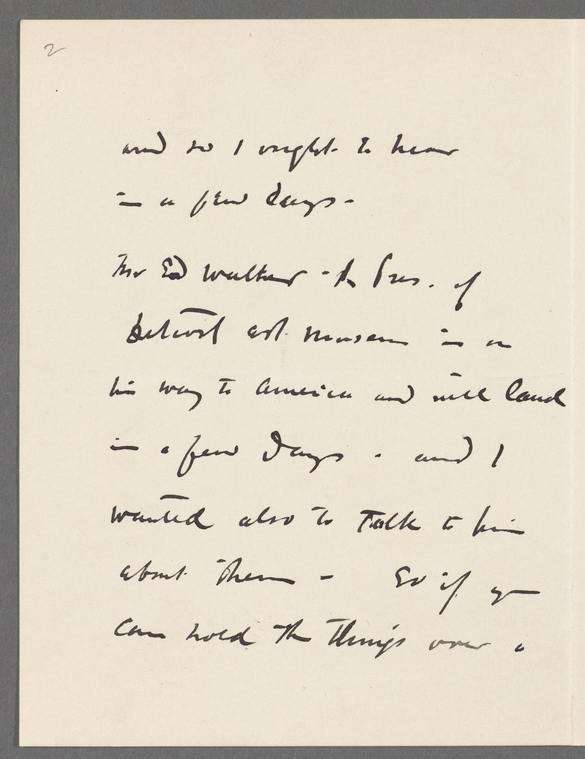 2
and so I ought to hear
in a few days -
Mr Ed Walker - the Pres. of
Detroit art museum is on
his way to America and will land
in a few days - and I
wanted also to talk to him
about them - So if you
can hold the things over a